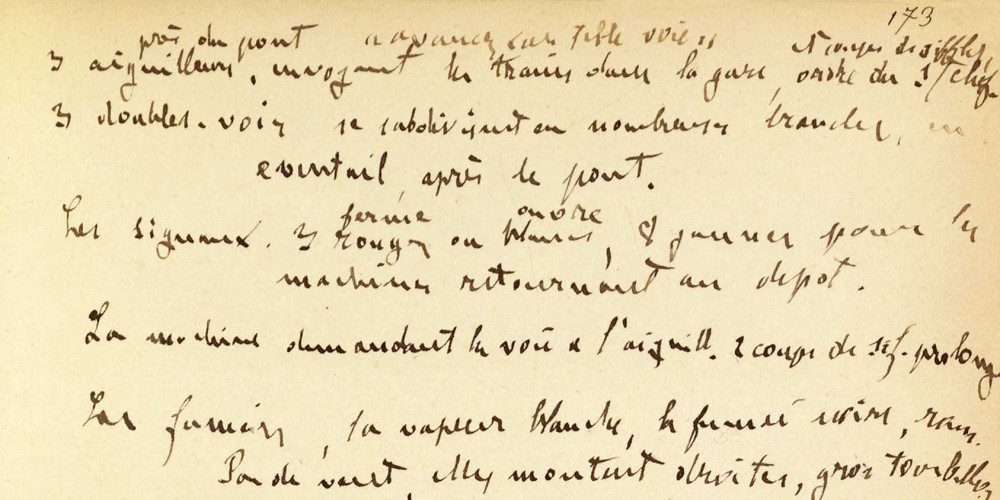 173
près du pont voies et coups de sifflet
3 aiguilleurs, envoyant les trains dans la gare, ordre du s/chef
3 doubles-voies se subdivisent en nombreuses branches, en
eventail, après le pont.
fermé ouvre
Les signaux. 3 rouges ou blancs, jaunes pour les
machines retournant au depot.
La machine demandant la voie a l'aiguill. 2 coups de sif. prolong
Les fumées, la vapeur blanche, la fumée noire,
Pas de vent, elles montent droites, gros tourbillons